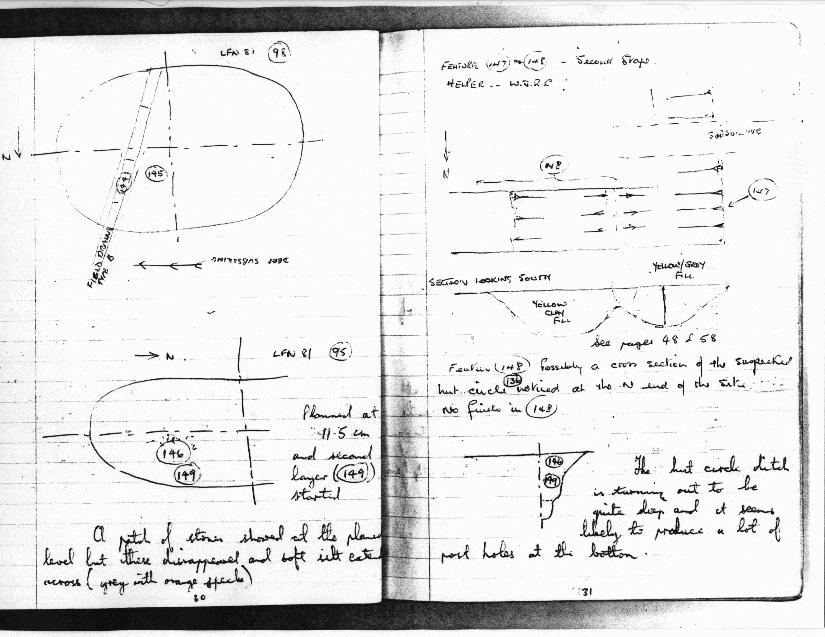 LFN 81 (98)
N
144
145
FIELD DRAINS
TYPE B
DEEP SUBSOILING
→ N
LFN 81 (95)
146
149
Planned at
11.5 cm
and second
layer (149)
started
A patch of stones showed at the planed
level but these disappeared and soft silt extend
across (grey with orange specks)
30
FEATURE (147) (148) - Second Stage.
HELPER -- W.G.J.C
SUBSOILING
N
148
147
SECTION LOOKING SOUTH
YELLOW/GREY
FILL
YELLOW
CLAY
FILL
See pages 48 & 58
Feature (148) Possibly a cross section of the suspected
136
hut circle noticed at the N end of the site
No finds in (148)
146
149
The hut circle ditch
is turning out to be
quite deep and it seems
likely to produce a lot of
post holes at the bottom.
31